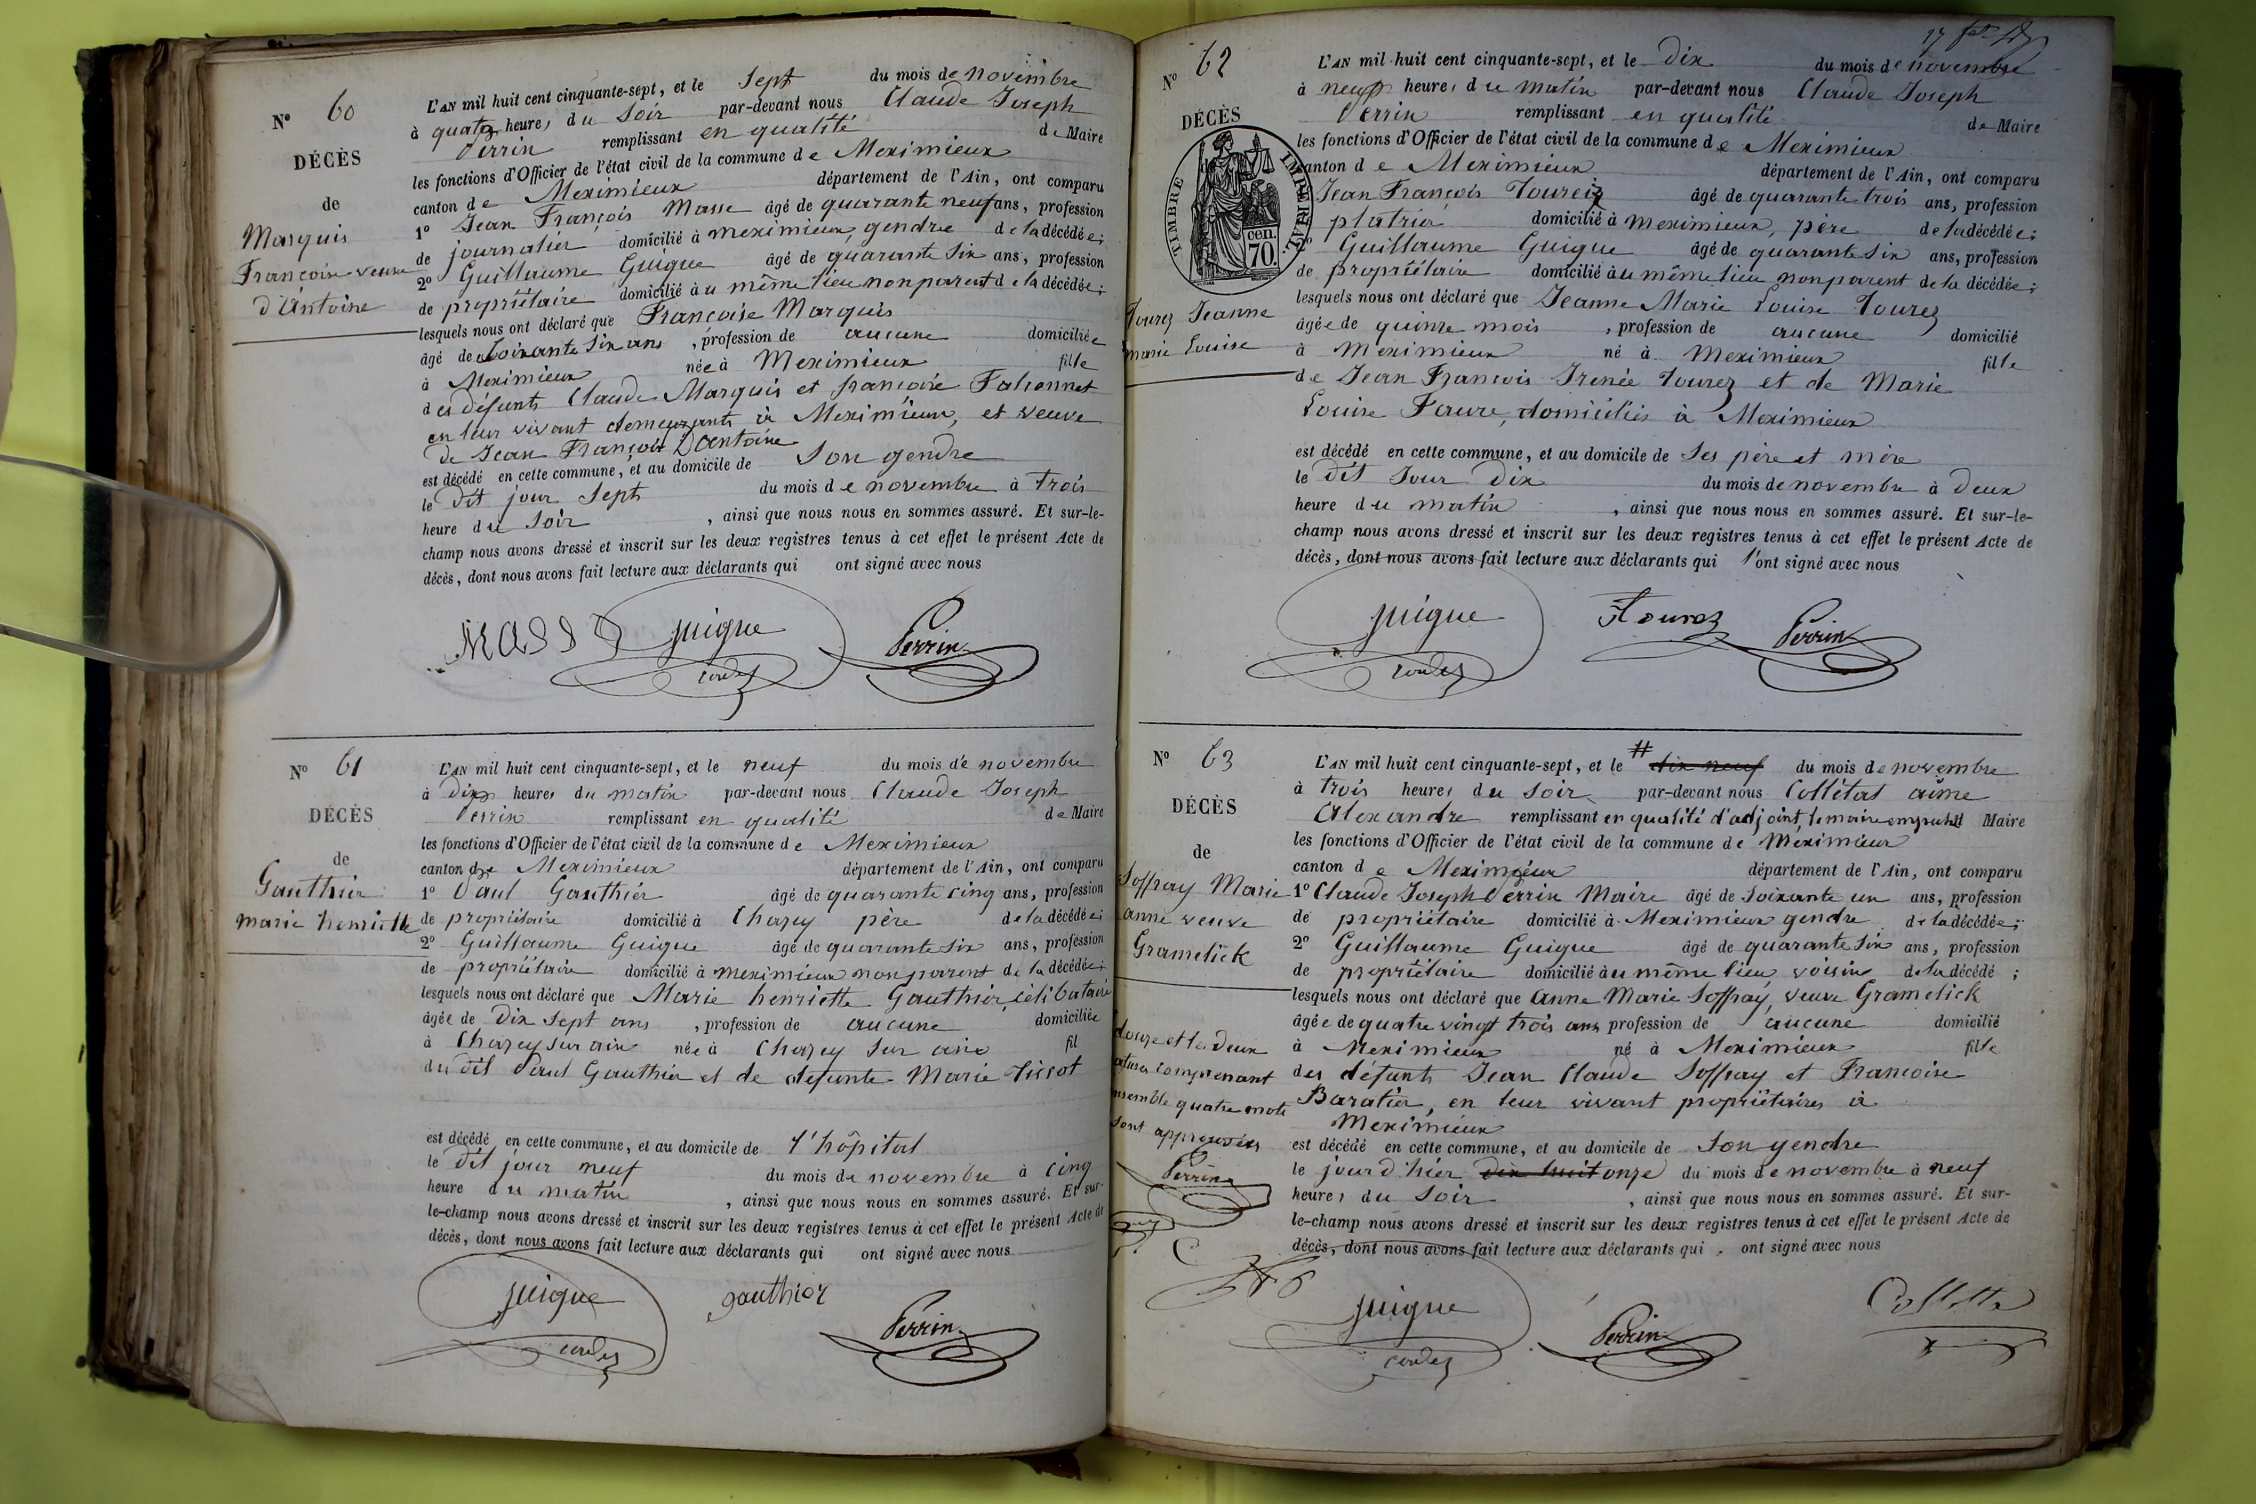 N° 60
DÉCÈS
de
Marquis
Françoise veuve
d'Antoine
L'AN mil huit cent cinquante-sept, et le Sept du mois de novembre
à quatre heures du Soir par-devant nous Claude Joseph
Perrin remplissant en qualité de Maire
les fonctions d'Officier de l'état civil de la commune de Meximieux
canton de Meximieux département de l'Ain, ont comparu
1° Jean François Masse âgé de quarante neuf ans, profession
de journalier domicilié à meximieux, gendre de la décédée;
2° Guillaume Guigue âgé de quarante six ans, profession
de propriétaire domicilié au même lieu non parent de la décédée;
lesquels nous ont déclaré que Françoise Marquis
âgé de Soixante Six ans, profession de aucune domiciliée
à Meximieux née à Meximieux fille
des défunts Claude Marquis et françoise
en leur vivant demeurants à Meximieux, et veuve
de Jean François D'Antoine
est décédé en cette commune, et au domicile de Son gendre
le dit jour Sept du mois de novembre à trois
heure du Soir, ainsi que nous nous en sommes assuré. Et sur-le-
champ nous avons dressé et inscrit sur les deux registres tenus à cet effet le présent Acte de
décès, dont nous avons fait lecture aux déclarants qui ont signé avec nous
MASSE guigue Perrin
N° 61
DÉCÈS
de
Gauthier
marie henriette
L'AN mil huit cent cinquante-sept, et le neuf du mois de novembre
à Dix heures du matin par-devant nous Claude Joseph
Perrin remplissant en qualité de Maire
les fonctions d'Officier de l'état civil de la commune de Meximieux
canton de Meximieux département de l'Ain, ont comparu
1° Paul Gauthier âgé de quarante cinq ans, profession
de propriétaire domicilié à Chazey père de la décédée;
2° Guillaume Guigue âgé de quarante Six ans, profession
de propriétaire domicilié à meximieux non parent de la décédée;
lesquels nous ont déclaré que Marie henriette Gauthier, célibataire
âgée de Dix Sept ans, profession de aucune domiciliée
à Chazey sur ain née à Chazey Sur ain fil
du dit Paul Gauthier et de defunte Marie Tissot
est décédé en cette commune, et au domicile de l'hôpital
le dit jour neuf du mois de novembre à cinq
heure du matin, ainsi que nous nous en sommes assuré. Et sur-
le-champ nous avons dressé et inscrit sur les deux registres tenus à cet effet le présent Acte de
décès, dont nous avons fait lecture aux déclarants qui ont signé avec nous
guigue gauthier Perrin
N° 62
DÉCÈS
TIMBRE IMPERIAL
70 cen.
Tourez Jeanne
marie Louise
L'AN mil huit cent cinquante-sept, et le Dix du mois de novembre
à neuf heures du matin par-devant nous Claude Joseph
Perrin remplissant en qualité de Maire
les fonctions d'Officier de l'état civil de la commune de Meximieux
canton de Meximieux département de l'Ain, ont comparu
Jean François Tourez âgé de quarante trois ans, profession
platrier domicilié à meximieux, père de la décédée;
Guillaume Guigue âgé de quarante Six ans, profession
de propriétaire domicilié au même lieu non parent de la décédée;
lesquels nous ont déclaré que Jeanne Marie Louise Tourez
âgée de quinze mois, profession de aucune domicilié
à Meximieux né à Meximieux fille
de Jean François Irenée Tourez et de Marie
Louise Favre, domiciliés à Meximieux
est décédé en cette commune, et au domicile de Ses père et mère
le dit Jour Dix du mois de novembre à Deux
heure du matin, ainsi que nous nous en sommes assuré. Et sur-le-
champ nous avons dressé et inscrit sur les deux registres tenus à cet effet le présent Acte de
décès, dont nous avons fait lecture aux déclarants qui l'ont signé avec nous
guigue Tourez Perrin
N° 63
DÉCÈS
de
Soffray Marie
anne veuve
Gramelick
L'AN mil huit cent cinquante-sept, et le # dix neuf du mois de novembre
à trois heures du Soir par-devant nous Colletat aimé
Alexandre remplissant en qualité d'adjoint, le maire empêché Maire
les fonctions d'Officier de l'état civil de la commune de Meximieux
canton de Meximieux département de l'Ain, ont comparu
1° Claude Joseph Perrin Maire âgé de Soixante un ans, profession
de propriétaire domicilié à Meximieux gendre de la décédée;
2° Guillaume Guigue âgé de quarante Six ans, profession
de propriétaire domicilié au même lieu, voisin de la décédé;
lesquels nous ont déclaré que anne Marie Soffray, veuve Gramelick
âgée de quatre vingt trois ans profession de aucune domicilié
à Meximieux né à Meximieux fille
des défunts Jean Claude Soffray et Françoise
Baratier, en leur vivant propriétaires à
Meximieux
est décédé en cette commune, et au domicile de Son gendre
le jour d'hier dix huit onze du mois de novembre à neuf
heures du Soir, ainsi que nous nous en sommes assuré. Et sur-
le-champ nous avons dressé et inscrit sur les deux registres tenus à cet effet le présent Acte de
décès, dont nous avons fait lecture aux déclarants qui ont signé avec nous
douze et les deux
ratures comprenant
ensemble quatre mots
sont approuvées
Perrin
guigue Perrin